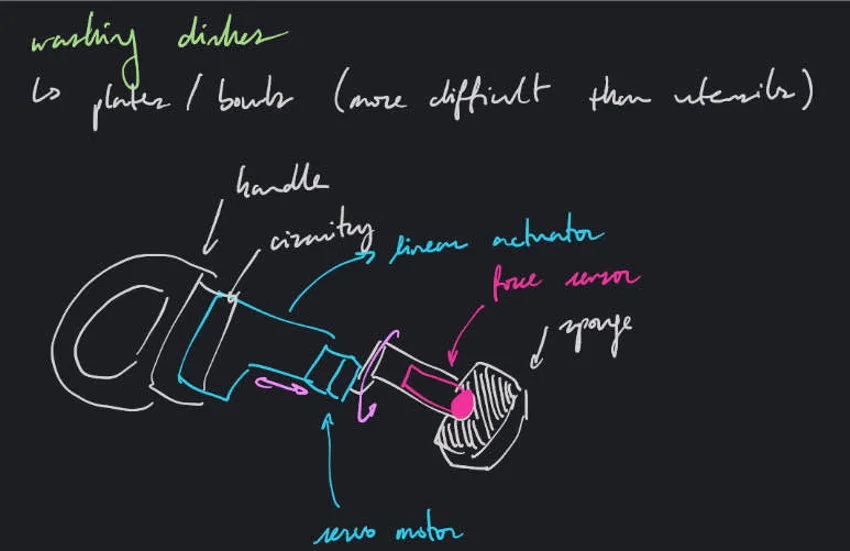 washing dishes
↳ plates / bowls (more difficult than utensils)
handle
circuitry
linear actuator
force sensor
sponge
servo motor